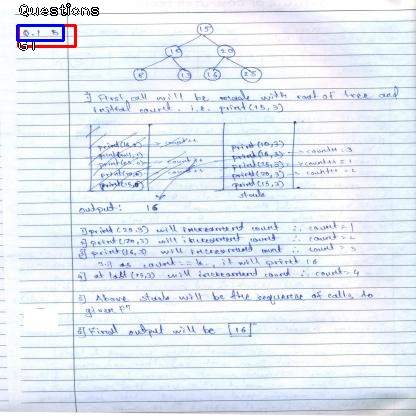 Questions
Q.1 B
Q1
15
10 20
5 13 16 25
1) First, call will be made with root of tree and
initial count. i.e. print(15,3)
print(10,3)
print(16,3) → count++ = 3
print(25,3) → count++ = 1
print(20,3) → count++ = 2
print(15,3)
stack
output: 16
1) print(25,3) will increament count ∴ count = 1
2) print(20,3) will increament count ∴ count = 2
3) print(16,3) will increament count ∴ count = 3
as, count == k, it will print 16
4) at last (15,3) will increament count ∴ count = 4
5) Above stack will be the sequence of calls to
given f?
6) Final output will be [16]